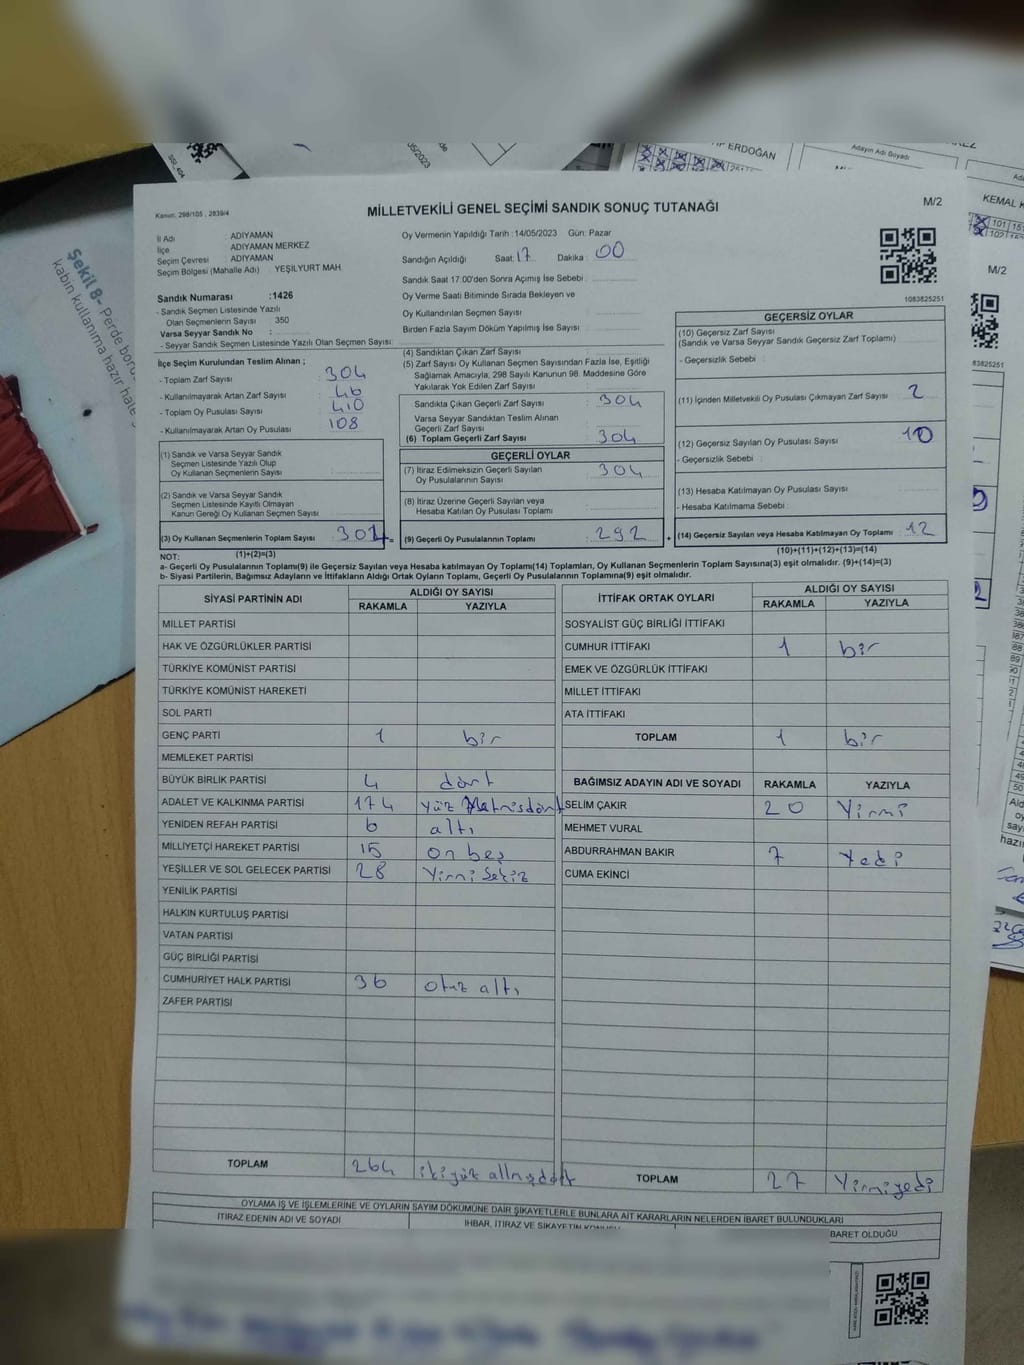 Şekil 8- Perde
kabin kullanıma hazır
05/2023
ERDOĞAN
Aday Adı Soyadı
KEMAL
M/2
Kanun, 298/105 , 2839/4
MİLLETVEKİLİ GENEL SEÇİMİ SANDIK SONUÇ TUTANAĞI
M/2
İl Adı : ADIYAMAN
İlçe : ADIYAMAN MERKEZ
Seçim Çevresi : ADIYAMAN
Seçim Bölgesi (Mahalle Adı) : YEŞİLYURT MAH.
Oy Vermenin Yapıldığı Tarih :14/05/2023 Gün: Pazar
Sandığın Açıldığı Saat: 17 Dakika : 00
Sandık Saat 17.00'den Sonra Açımış İse Sebebi :
Oy Verme Saati Bitiminde Sırada Bekleyen ve
Oy Kullandırılan Seçmen Sayısı :
Birden Fazla Sayım Döküm Yapılmış İse Sayısı :
1083825251
Sandık Numarası :1426
- Sandık Seçmen Listesinde Yazılı
Olan Seçmenlerin Sayısı : 350
Varsa Seyyar Sandık No :
- Seyyar Sandık Seçmen Listesinde Yazılı Olan Seçmen Sayısı :
İlçe Seçim Kurulundan Teslim Alınan ;
- Toplam Zarf Sayısı : 304
- Kullanılmayarak Artan Zarf Sayısı : 46
- Toplam Oy Pusulası Sayısı : 410
- Kullanılmayarak Artan Oy Pusulası : 108
(1) Sandık ve Varsa Seyyar Sandık
Seçmen Listesinde Yazılı Olup
Oy Kullanan Seçmenlerin Sayısı :
(2) Sandık ve Varsa Seyyar Sandık
Seçmen Listesinde Kayıtlı Olmayan
Kanun Gereği Oy Kullanan Seçmen Sayısı :
(3) Oy Kullanan Seçmenlerin Toplam Sayısı : 304
(1)+(2)=(3)
(4) Sandıktan Çıkan Zarf Sayısı :
(5) Zarf Sayısı Oy Kullanan Seçmen Sayısından Fazla İse, Eşitliği
Sağlamak Amacıyla; 298 Sayılı Kanunun 98. Maddesine Göre
Yakılarak Yok Edilen Zarf Sayısı :
Sandıkta Çıkan Geçerli Zarf Sayısı : 304
Varsa Seyyar Sandıktan Teslim Alınan
Geçerli Zarf Sayısı :
(6) Toplam Geçerli Zarf Sayısı : 304
GEÇERLİ OYLAR
(7) İtiraz Edilmeksizin Geçerli Sayılan
Oy Pusulalarının Sayısı : 304
(8) İtiraz Üzerine Geçerli Sayılan veya
Hesaba Katılan Oy Pusulası Toplamı :
= (9) Geçerli Oy Pusulalarının Toplamı : 292
GEÇERSİZ OYLAR
(10) Geçersiz Zarf Sayısı
(Sandık ve Varsa Seyyar Sandık Geçersiz Zarf Toplamı) :
- Geçersizlik Sebebi :
(11) İçinden Milletvekili Oy Pusulası Çıkmayan Zarf Sayısı : 2
(12) Geçersiz Sayılan Oy Pusulası Sayısı : 10
- Geçersizlik Sebebi :
(13) Hesaba Katılmayan Oy Pusulası Sayısı :
- Hesaba Katılmama Sebebi :
+ (14) Geçersiz Sayılan veya Hesaba Katılmayan Oy Toplamı : 12
(10)+(11)+(12)+(13)=(14)
NOT:
a- Geçerli Oy Pusulalarının Toplamı(9) ile Geçersiz Sayılan veya Hesaba katılmayan Oy Toplamı(14) Toplamları, Oy Kullanan Seçmenlerin Toplam Sayısına(3) eşit olmalıdır. (9)+(14)=(3)
b- Siyasi Partilerin, Bağımsız Adayların ve İttifakların Aldığı Ortak Oyların Toplamı, Geçerli Oy Pusulalarının Toplamına(9) eşit olmalıdır.
SİYASİ PARTİNİN ADI ALDIĞI OY SAYISI
RAKAMLA YAZIYLA
MİLLET PARTİSİ
HAK VE ÖZGÜRLÜKLER PARTİSİ
TÜRKİYE KOMÜNİST PARTİSİ
TÜRKİYE KOMÜNİST HAREKETİ
SOL PARTİ
GENÇ PARTİ 1 bir
MEMLEKET PARTİSİ
BÜYÜK BİRLİK PARTİSİ 4 dört
ADALET VE KALKINMA PARTİSİ 174 yüz yetmişdört
YENİDEN REFAH PARTİSİ 6 altı
MİLLİYETÇİ HAREKET PARTİSİ 15 on beş
YEŞİLLER VE SOL GELECEK PARTİSİ 28 Yirmi Sekiz
YENİLİK PARTİSİ
HALKIN KURTULUŞ PARTİSİ
VATAN PARTİSİ
GÜÇ BİRLİĞİ PARTİSİ
CUMHURİYET HALK PARTİSİ 36 otuz altı
ZAFER PARTİSİ
TOPLAM 264 ikiyüz altmışdört
İTTİFAK ORTAK OYLARI ALDIĞI OY SAYISI
RAKAMLA YAZIYLA
SOSYALİST GÜÇ BİRLİĞİ İTTİFAKI
CUMHUR İTTİFAKI 1 bir
EMEK VE ÖZGÜRLÜK İTTİFAKI
MİLLET İTTİFAKI
ATA İTTİFAKI
TOPLAM 1 bir
BAĞIMSIZ ADAYIN ADI VE SOYADI RAKAMLA YAZIYLA
SELİM ÇAKIR 20 Yirmi
MEHMET VURAL
ABDURRAHMAN BAKIR 7 Yedi
CUMA EKİNCİ
TOPLAM 27 Yirmiyedi
OYLAMA İŞ VE İŞLEMLERİNE VE OYLARIN SAYIM DÖKÜMÜNE DAİR ŞİKAYETLERLE BUNLARA AİT KARARLARIN NELERDEN İBARET BULUNDUKLARI
İTİRAZ EDENİN ADI VE SOYADI
İHBAR, İTİRAZ VE ŞİKAYETİN KONUSU
İBARET OLDUĞU